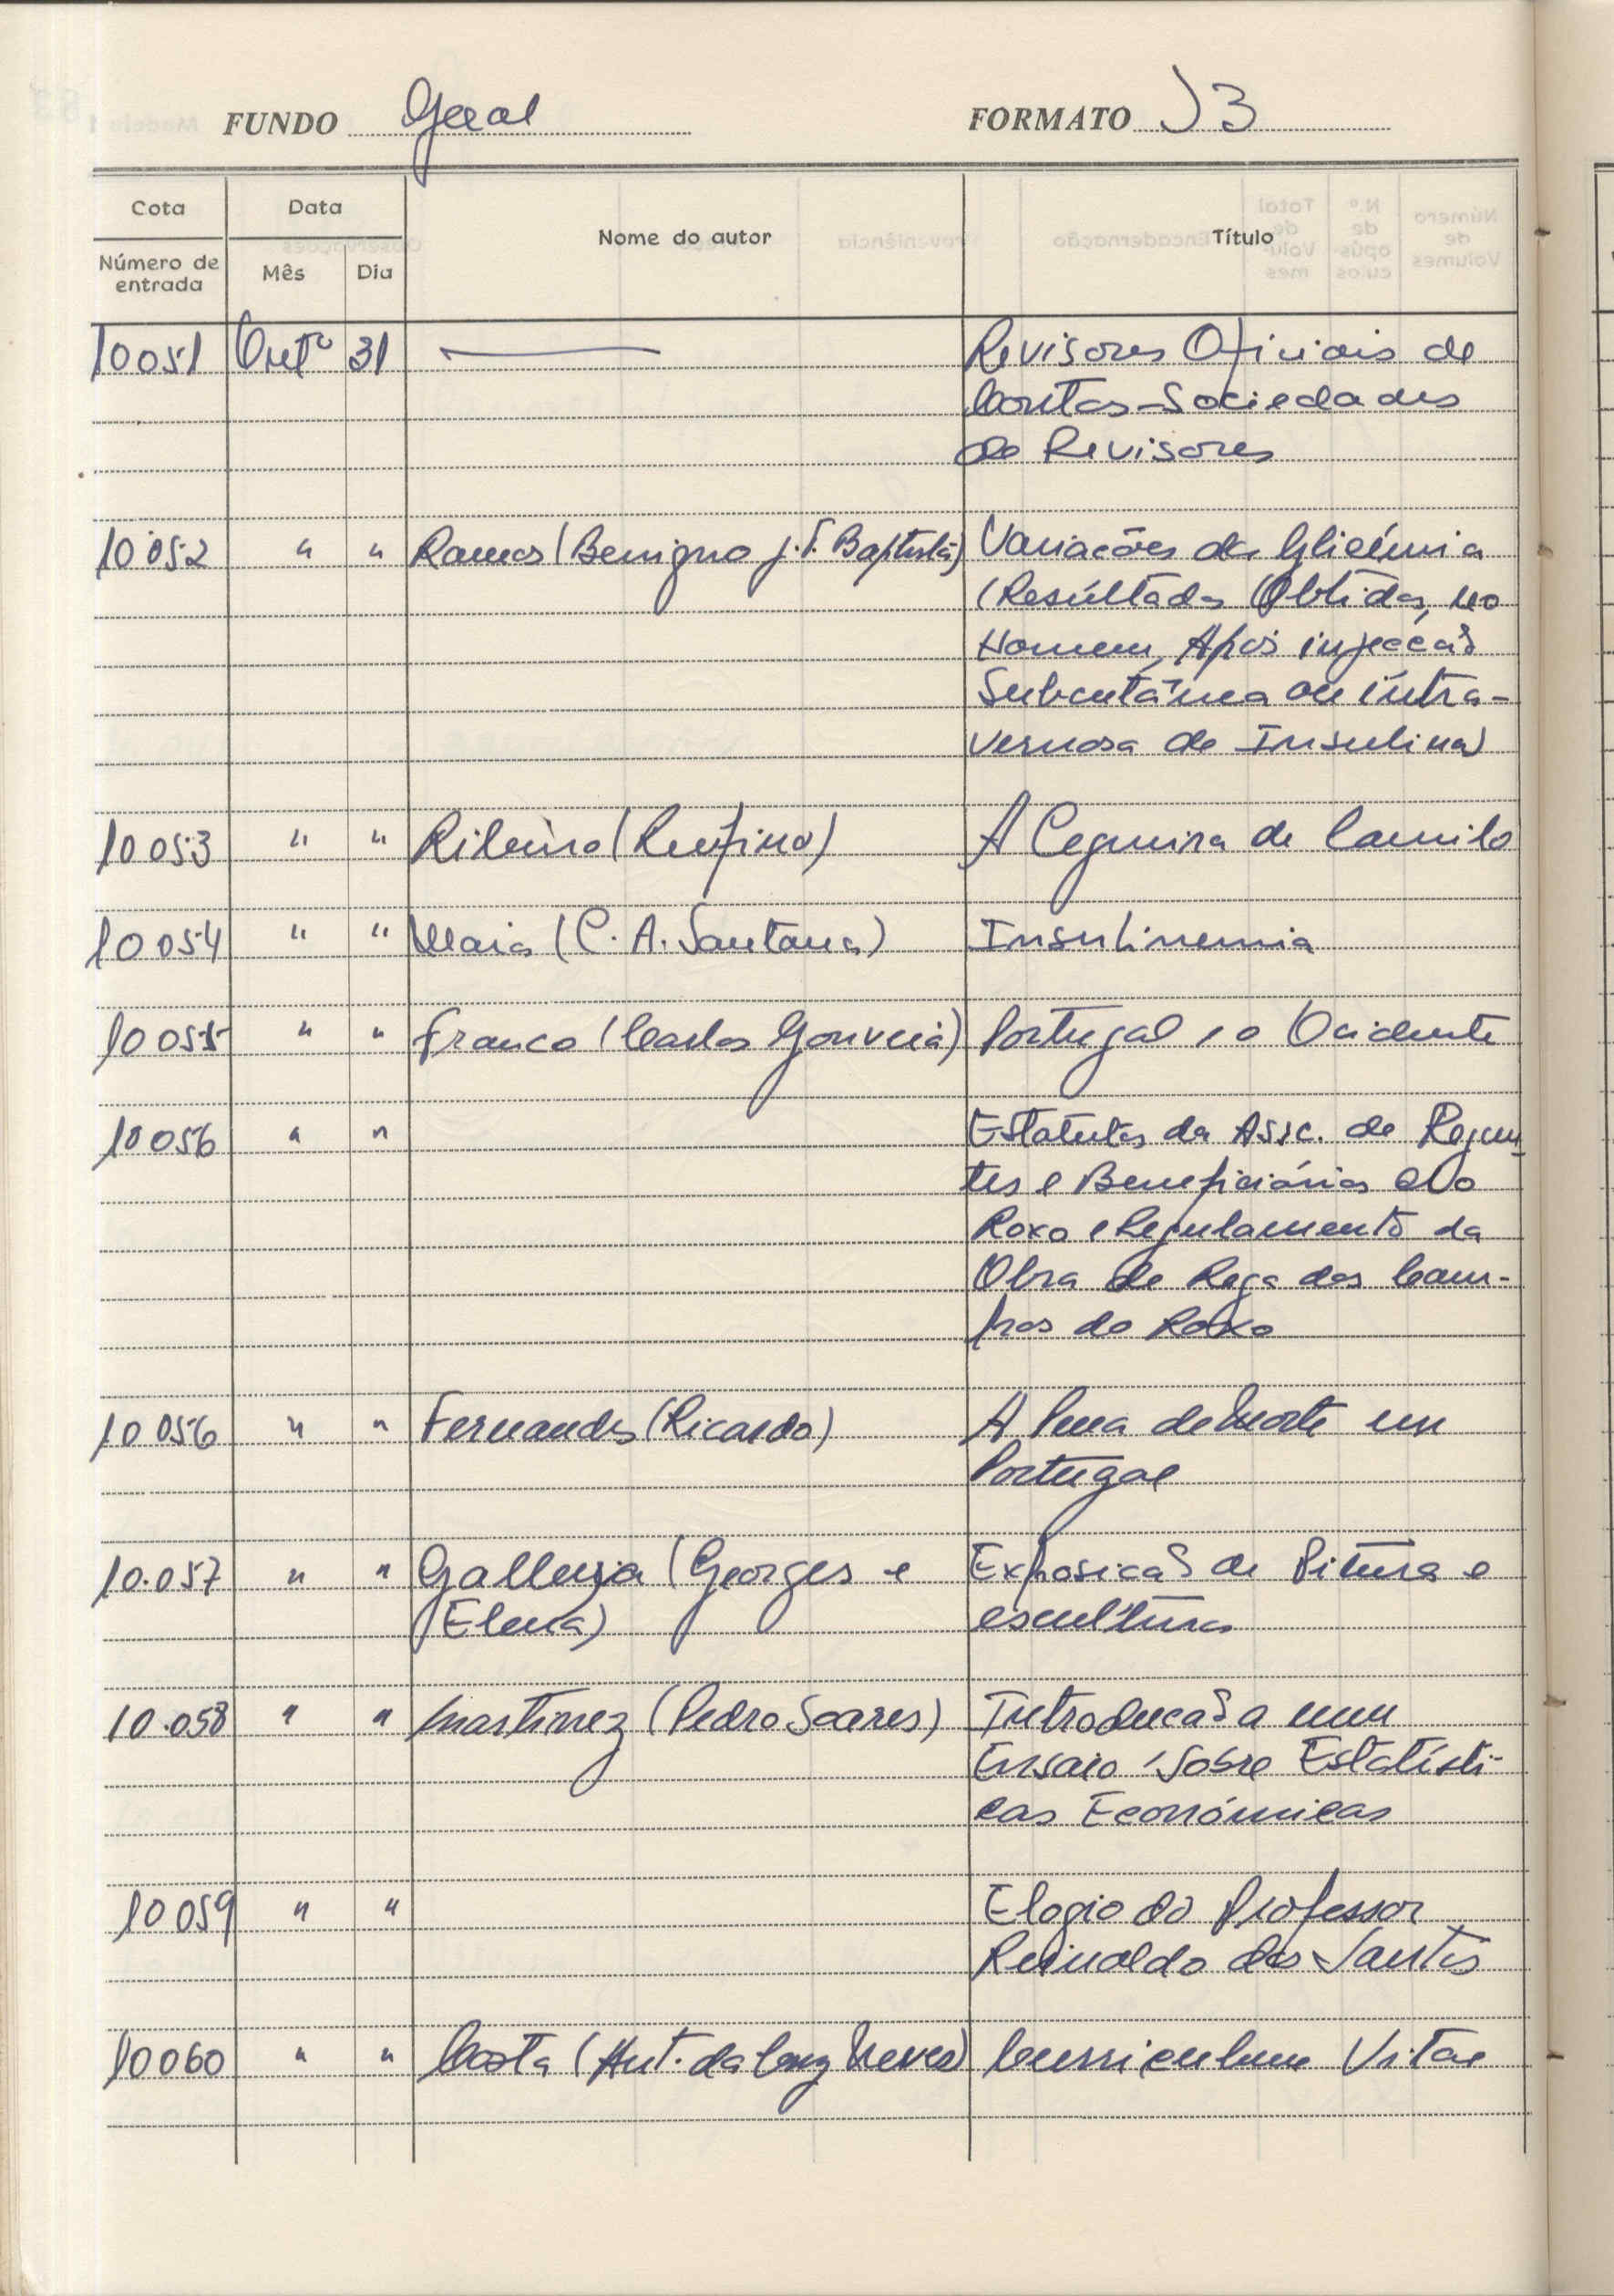 FUNDO Geral FORMATO J3
Cota Data Nome do autor Título
Número de entrada Mês Dia
10051 Outº 31 Revisores Oficiais de
Contas-Sociedades
de Revisores
10052 " " Ramos (Benigno J. T. Baptista) Variacões da Glicémia
(Resúltados Obtidos, no
Homem, Após injeccão
Subcutânea ou intra-
vernosa de Insulina)
10053 " " Ribeiro (Rufino) A Cegueira de Camilo
10054 " " Maia (C. A. Santana) Insulinemia
10055 " " Franco (Carlos Gouveia) Portugal e o Ocidente
10056 " " Estatutos da Assc. de Regen-
tes e Beneficiários do
Roxo e Regulamento da
Obra de Rega dos Cam-
pos do Roxo
10056 " " Fernandes (Ricardo) A Pena de Morte em
Portugal
10.057 " " (Georges e Exposicão de Pitura e
(Elena) escultura
10.058 " " Martinez (Pedro Soares) Introducão a um
Ensaio Sobre Estatísti-
cas Económicas
10059 " " Elogio do Professor
Reinaldo dos Santos
10060 " " Costa (Ant. da Cruz Neves) Curriculum Vitae